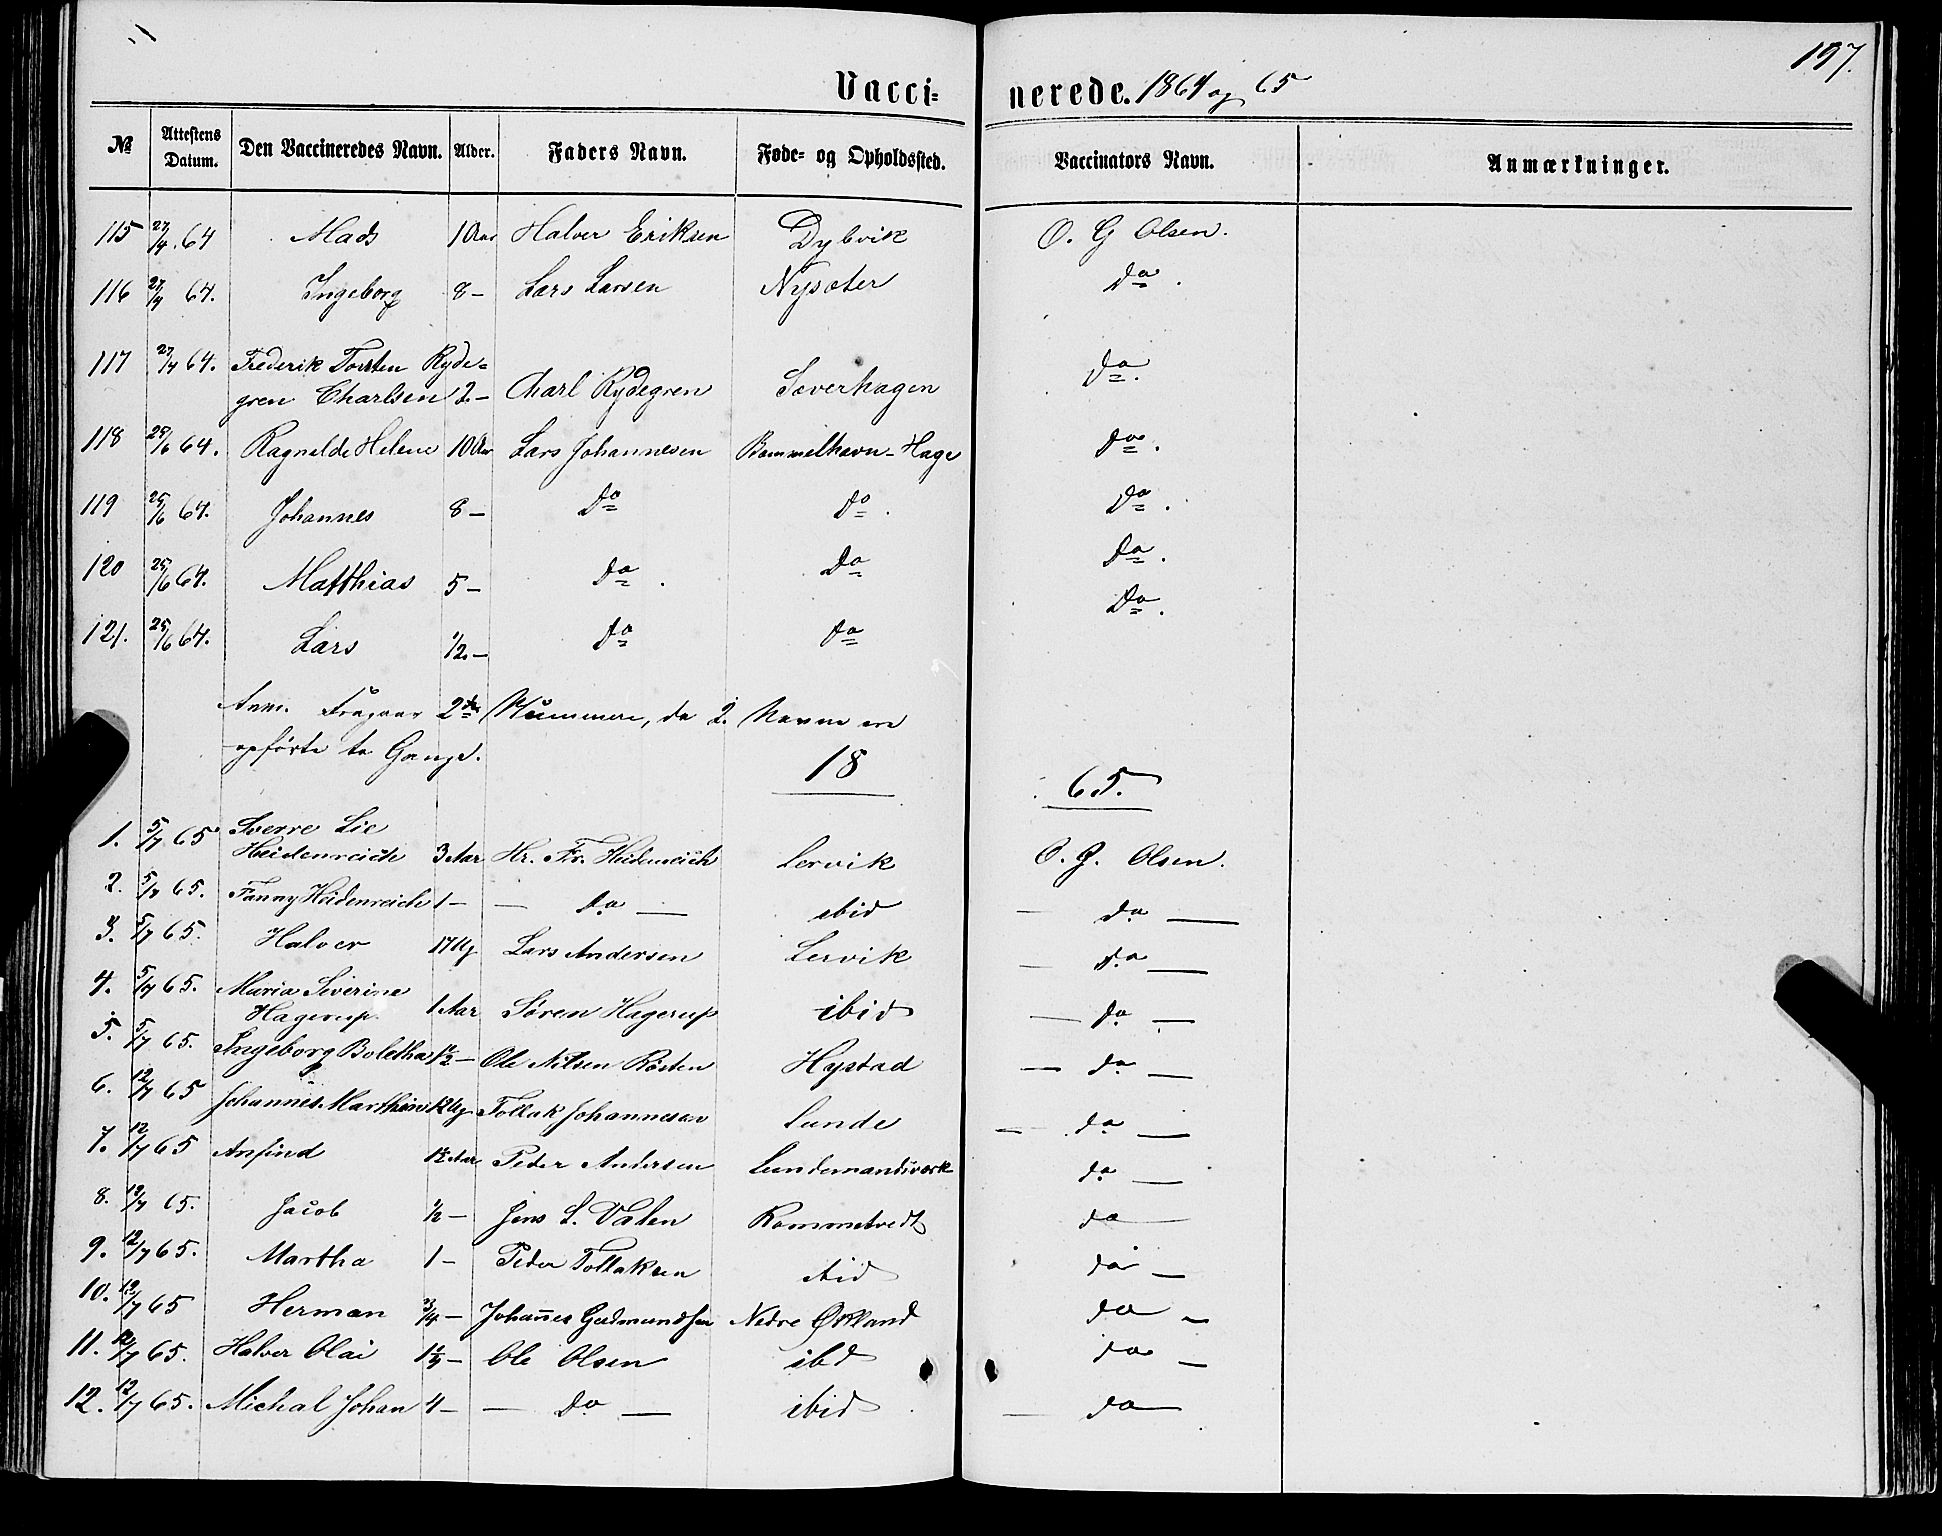 197.
Vaccinerede. 1864 og 65
№ Attestens Datum. Den Vaccineredes Navn. Alder. Faders Navn. Føde- og Opholdssted. Vaccinators Navn. Anmærkninger.
115 27/4 64 Mads 10 Aar Halver Eriksen Dybvik O. G Olsen.
116 27/4 64. Ingeborg 8 – Lars Larsen Nysæter do.
117 27/4 64. Frederik Torsten Ryde=
gren Charlsen 2. – Charl Rydegren Sæverhagen do.
118 25/6 64. Ragnilde Helene 10 Aar Lars Johannesen Bommelhavn-Hage do.
119 25/6 64. Johannes 8 – do do. do.
120 25/6 64. Matthias 5 – do. do do.
121. 25/6 64. Lars 1/2. – do do do.
Anm. Fragaar 2de Nummere, da 2. Navne ere
opførte to Gange.
18 65.
1. 5/7 65 Sverre Lie
Heidenreich 3 Aar Hr. Fr. Heidenreich Lervik O. G. Olsen.
2. 5/7 65. Fanny Heidenreich 1 – — do — ibid — do —
3. 5/7 65. Halver 17 Ug Lars Andersen Lervik — do —
4. 5/7 65. Maria Severine
Hagerup. 1 Aar Søren Hagerup ibid — do —
5. 5/7 65. Ingeborg Boletha 1 1/2 – Ole Nilsen Røsten Hystad — do —
6. 12/7 65 Johannes Marthin 12 Ug Tollak Johannesen Lunde — do —
7. 12/7 65 Anfind 1 1/2 Aar Peder Andersen Lundemandsværk do —
8. 12/7 65. Jacob 1/2 – Jens L. Valen Rommetvedt do —
9. 12/7 65. Martha 1 – Peder Tollaksen ibid do —
10. 12/7 65 Herman 3/4 – Johannes Gudmundsen Nedre Økland do –
11. 12/7 65. Halver Olai 1 1/2 – Ole Olsen ibd do –
12. 12/7 65. Michal Johan 4 – — do — ibid — do —